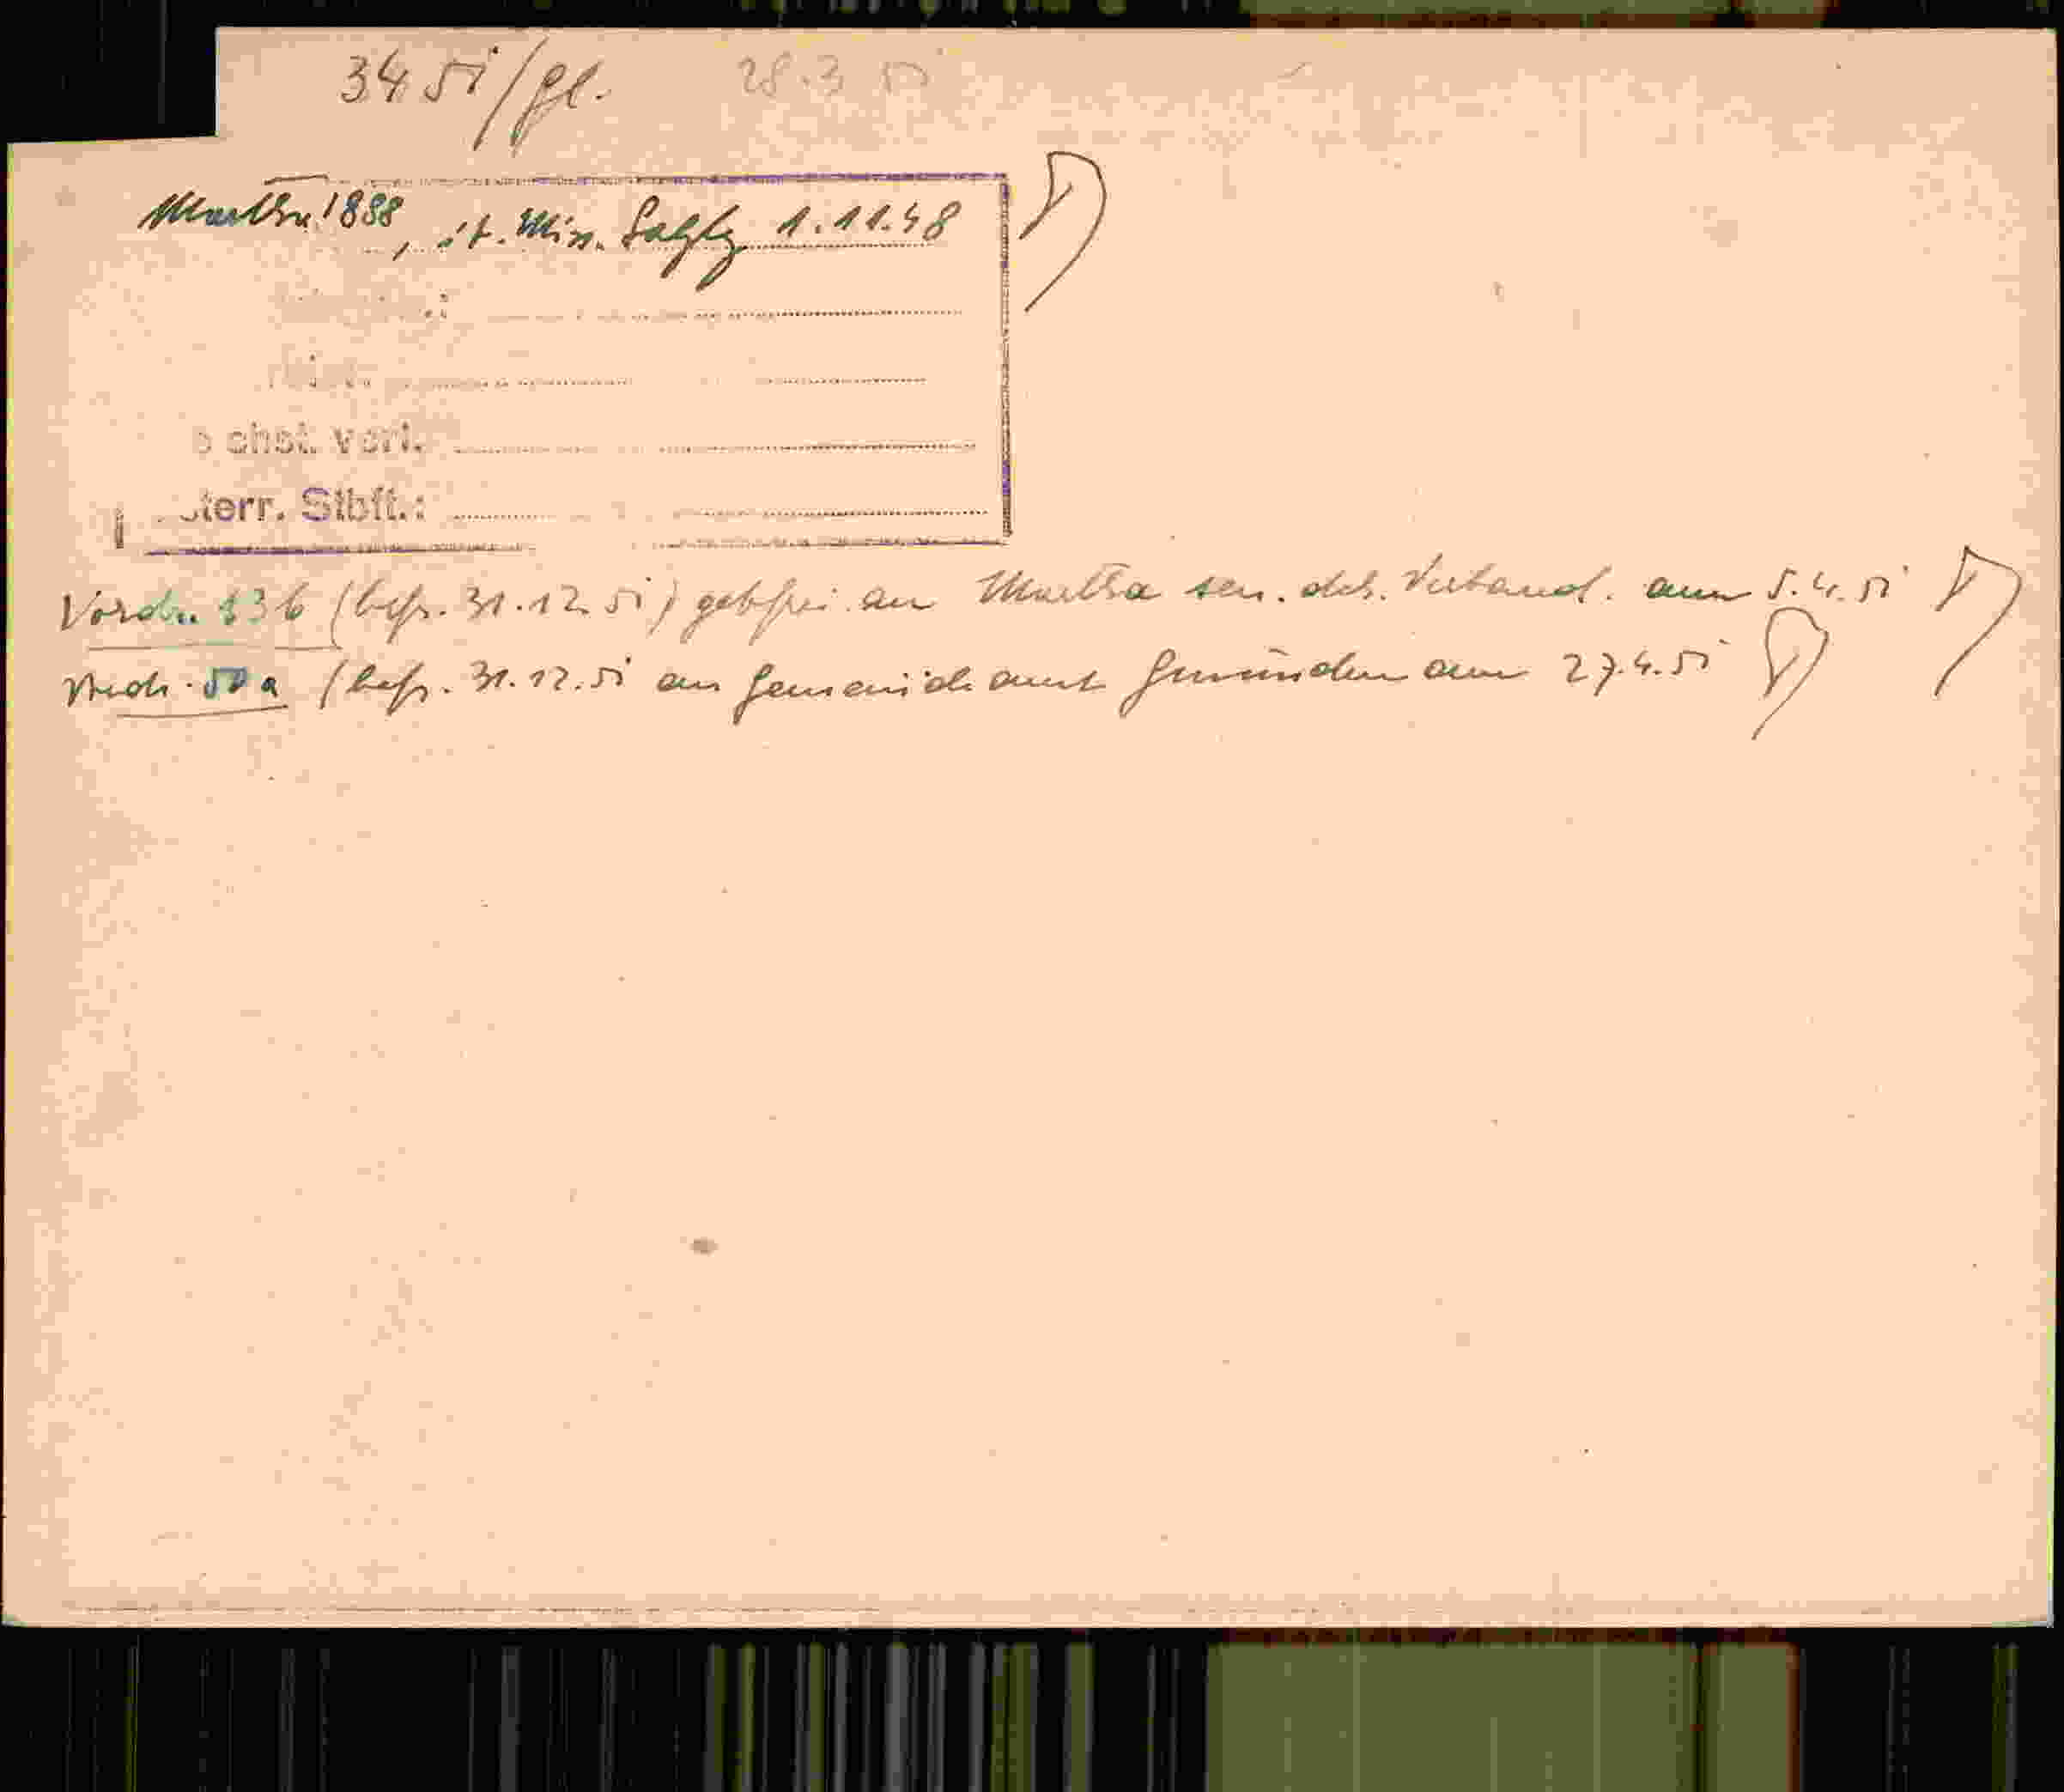 34 51/gl. 28.3 51
Martha 1888, it. Min. Salzbg 1.11.48
chst. verl.
terr. Stbft.:
Vordr. 536 (befr. 31.12.51) gebfrei an Martha sen. dch. Verband. am 5.4.51
Vordr. 50a (befr. 31.12.51 an Gemeindeamt Gmünden am 27.4.51